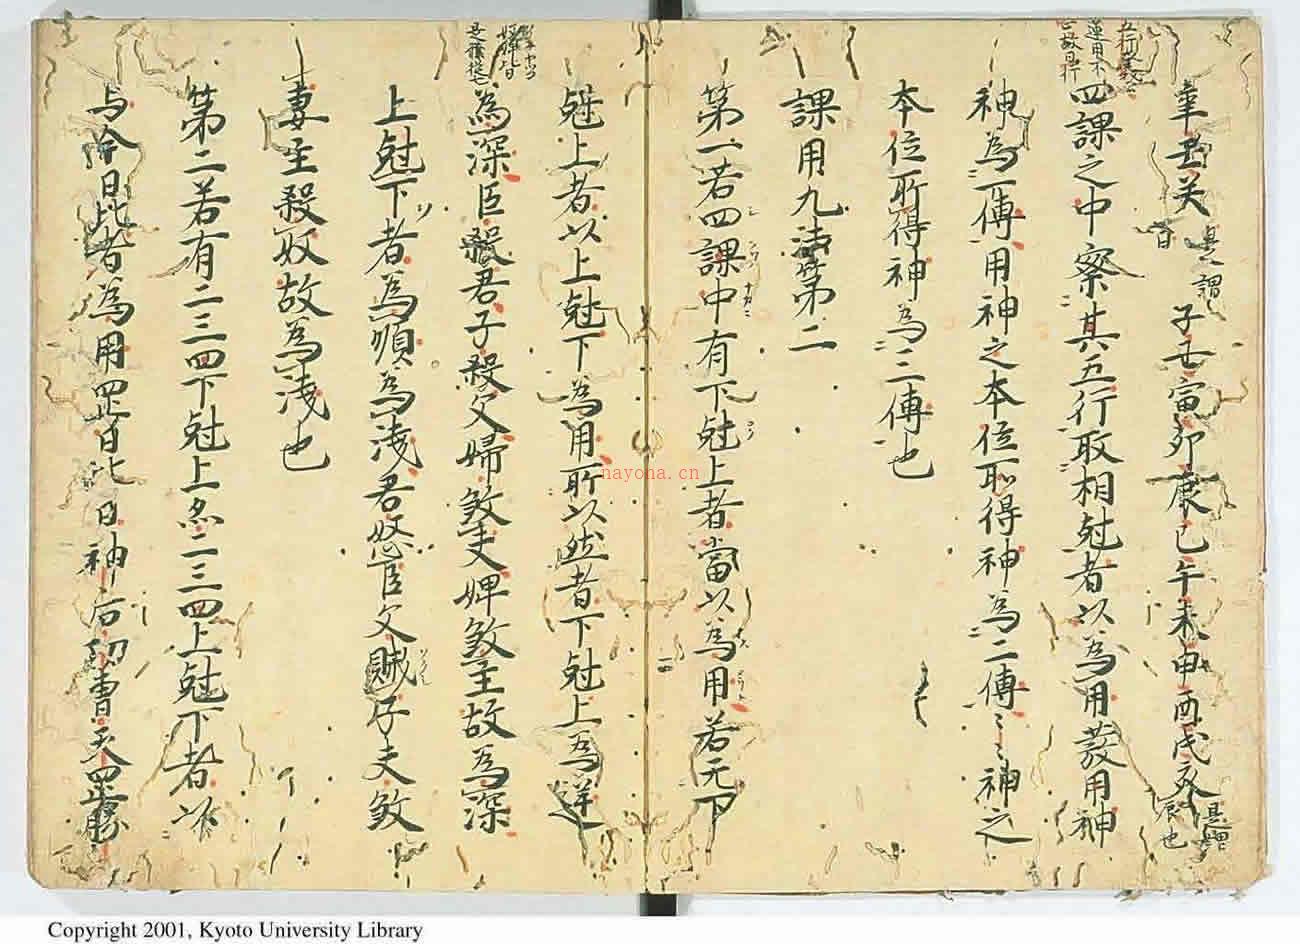 辛壬癸 是謂
日 子丑寅卯辰巳午未申酉戌亥 是謂
辰也
四課之中察其五行取相尅者以為用發用神
神為一傳用神之本位所得神為二傳〻神之
本位所得神為三傳也
課用九法第二
第一若四課中有下尅上者當以為用若无下
尅上者以上尅下為用所以然者下尅上為逆
為深臣殺君子殺父婦煞夫婢煞主故為深
上尅下者為順為淺君怒臣父賊子夫煞
妻主殺奴故為淺也
第二若有二三四下尅上亦二三四上尅下者以
与今日比者為用罡日比日神后功曹天罡勝
nayona.cn
Copyright 2001, Kyoto University Library